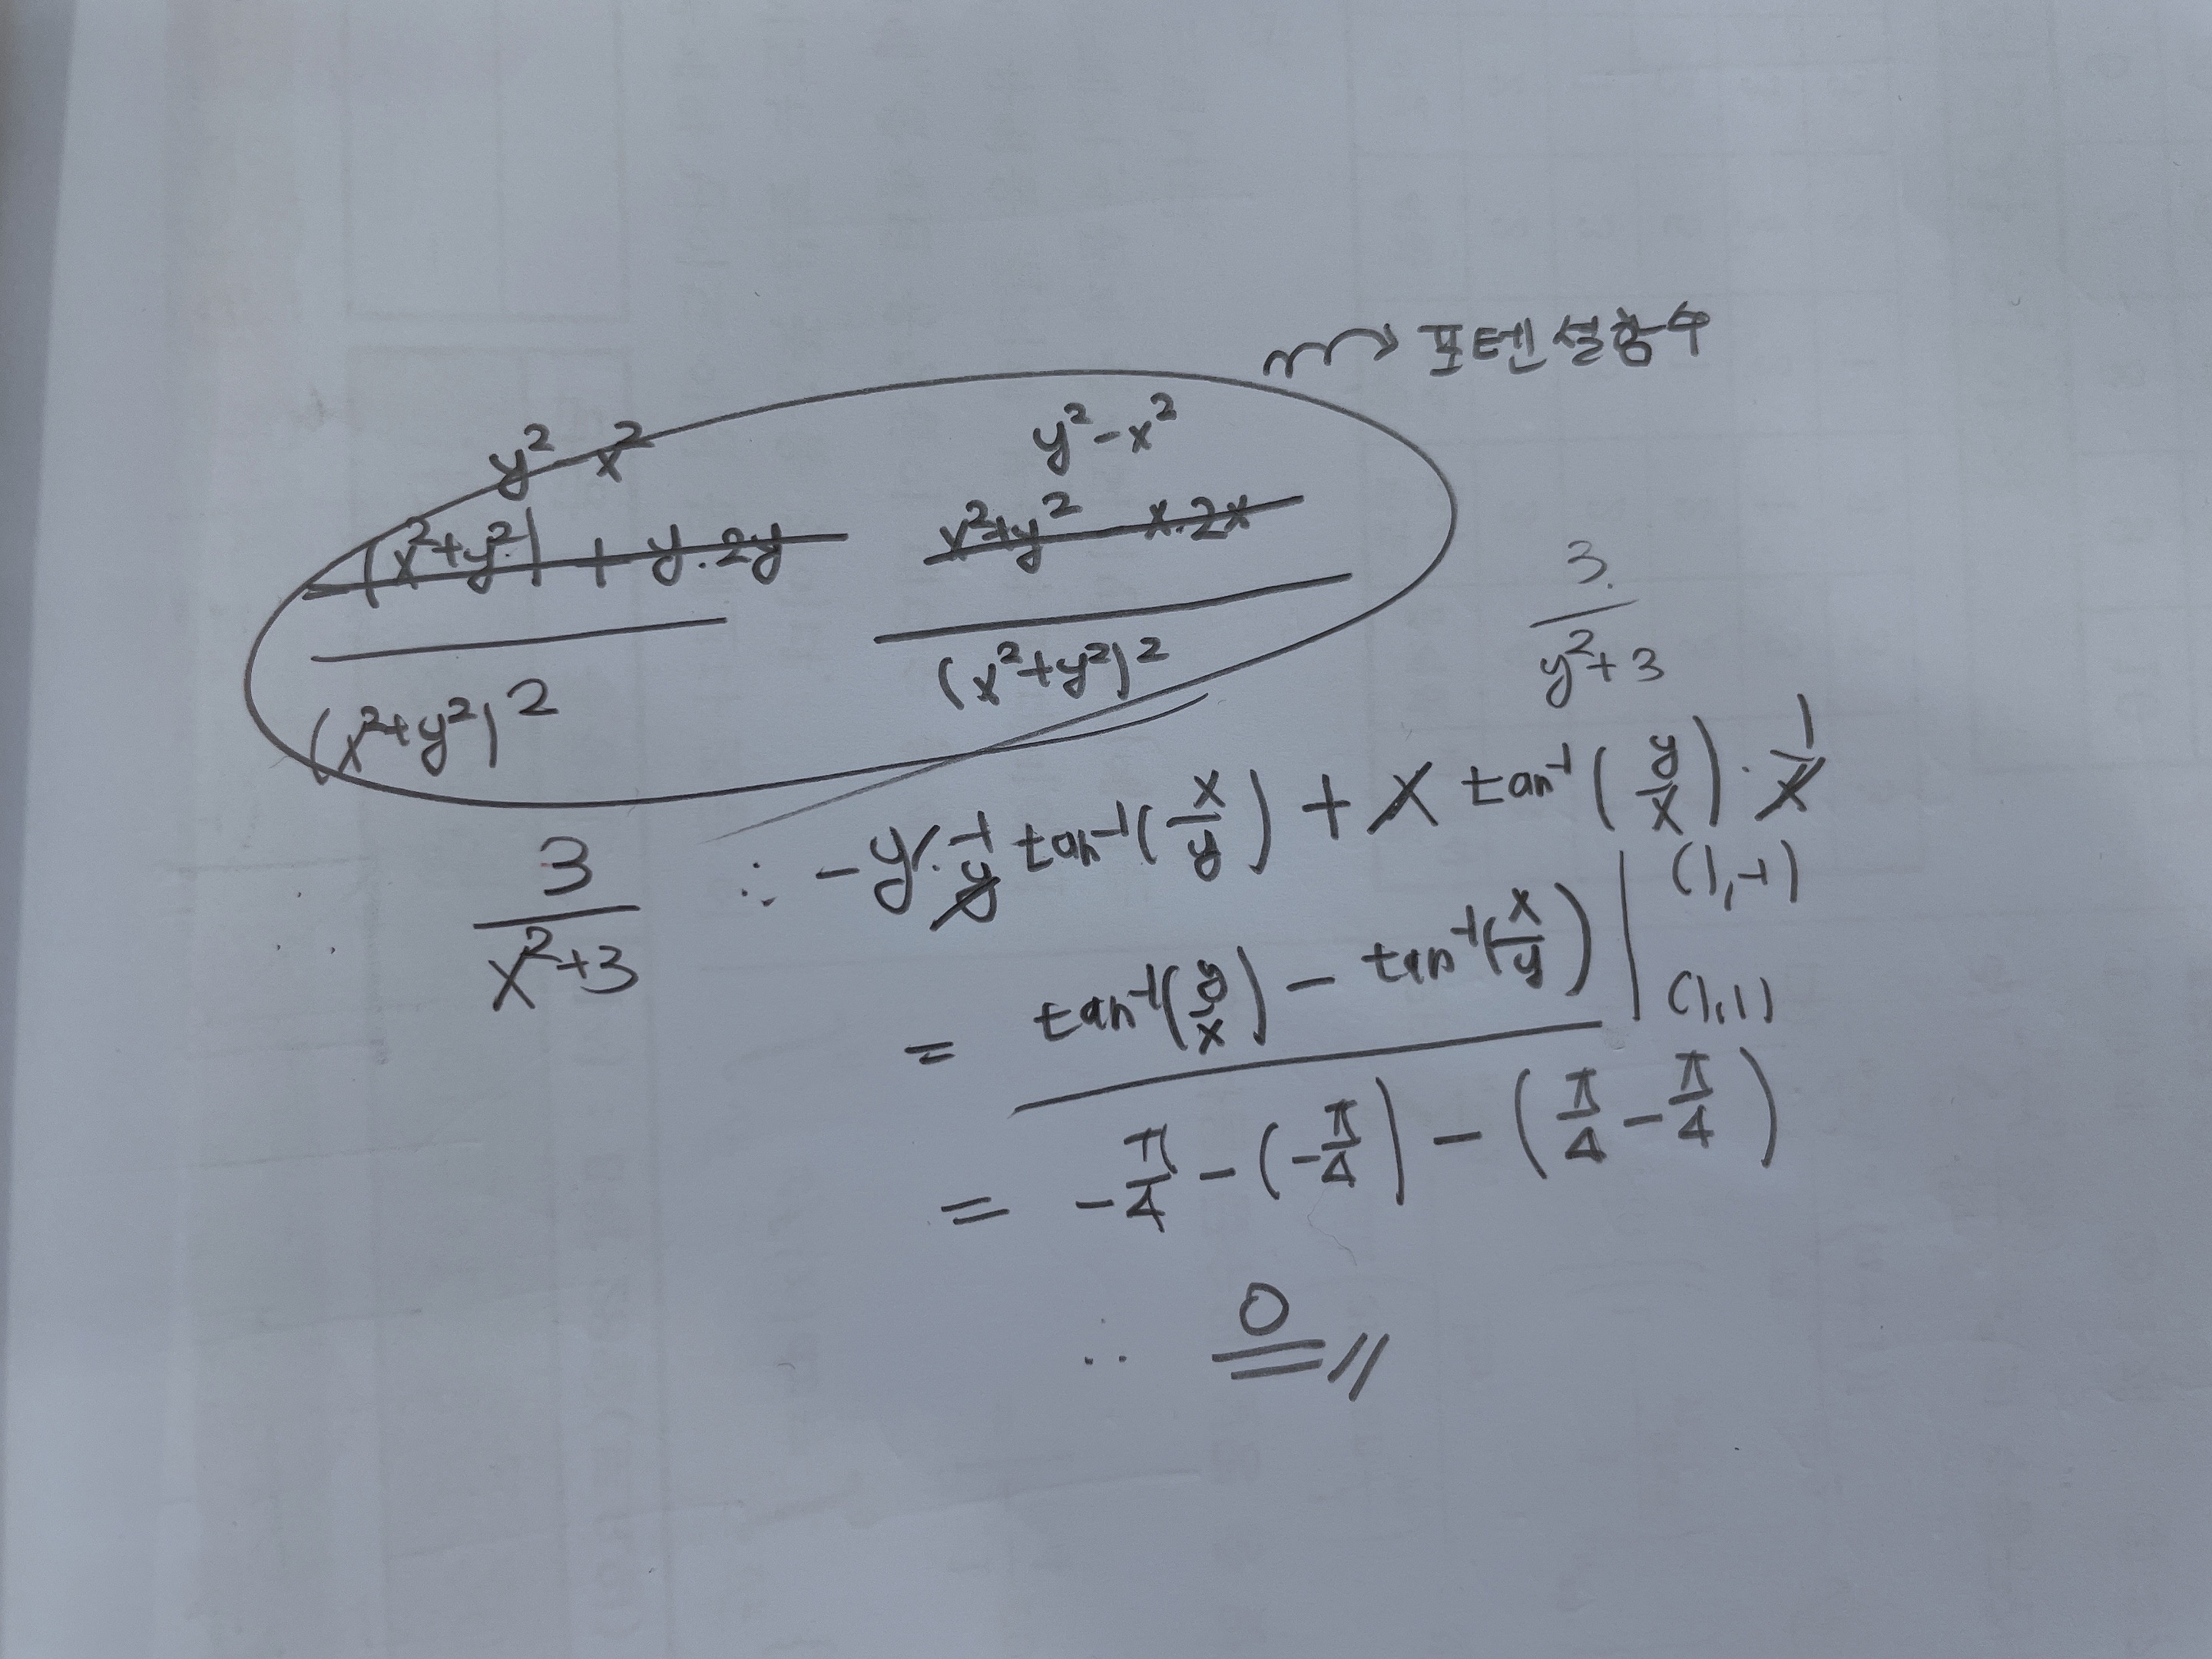 → 포텐셜함수
y² x² y²-x²
(x²+y²) + y.2y x²+y² x.2x
(x²+y²)² (x²+y²)²
3/(y²+3)
3/(x²+3)
∴ -y·1/y tan⁻¹(x/y) + x tan⁻¹(y/x)·1/x
= tan⁻¹(y/x) - tan⁻¹(x/y) | (1,-1) (1,1)
= -π/4 - (-π/4) - (π/4 - π/4)
∴ 0 //